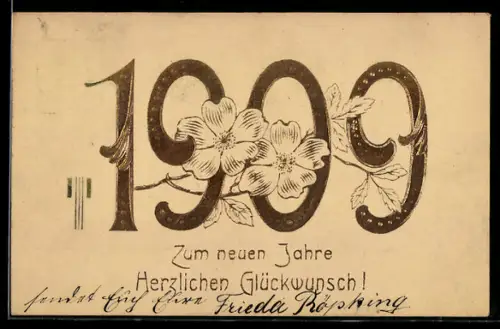 1909
Zum neuen Jahre
Herzlichen Glückwunsch!
sendet Euch Eure Frieda Röpking